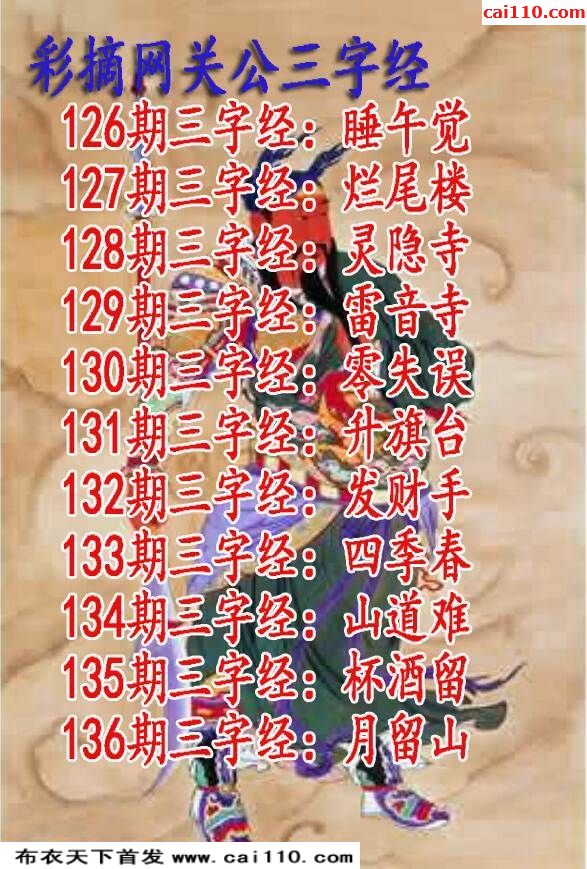 cai110.com
彩摘网关公三字经
126期三字经：睡午觉
127期三字经：烂尾楼
128期三字经：灵隐寺
129期三字经：雷音寺
130期三字经：零失误
131期三字经：升旗台
132期三字经：发财手
133期三字经：四季春
134期三字经：山道难
135期三字经：杯酒留
136期三字经：月留山
布衣天下首发 www.cai110.com